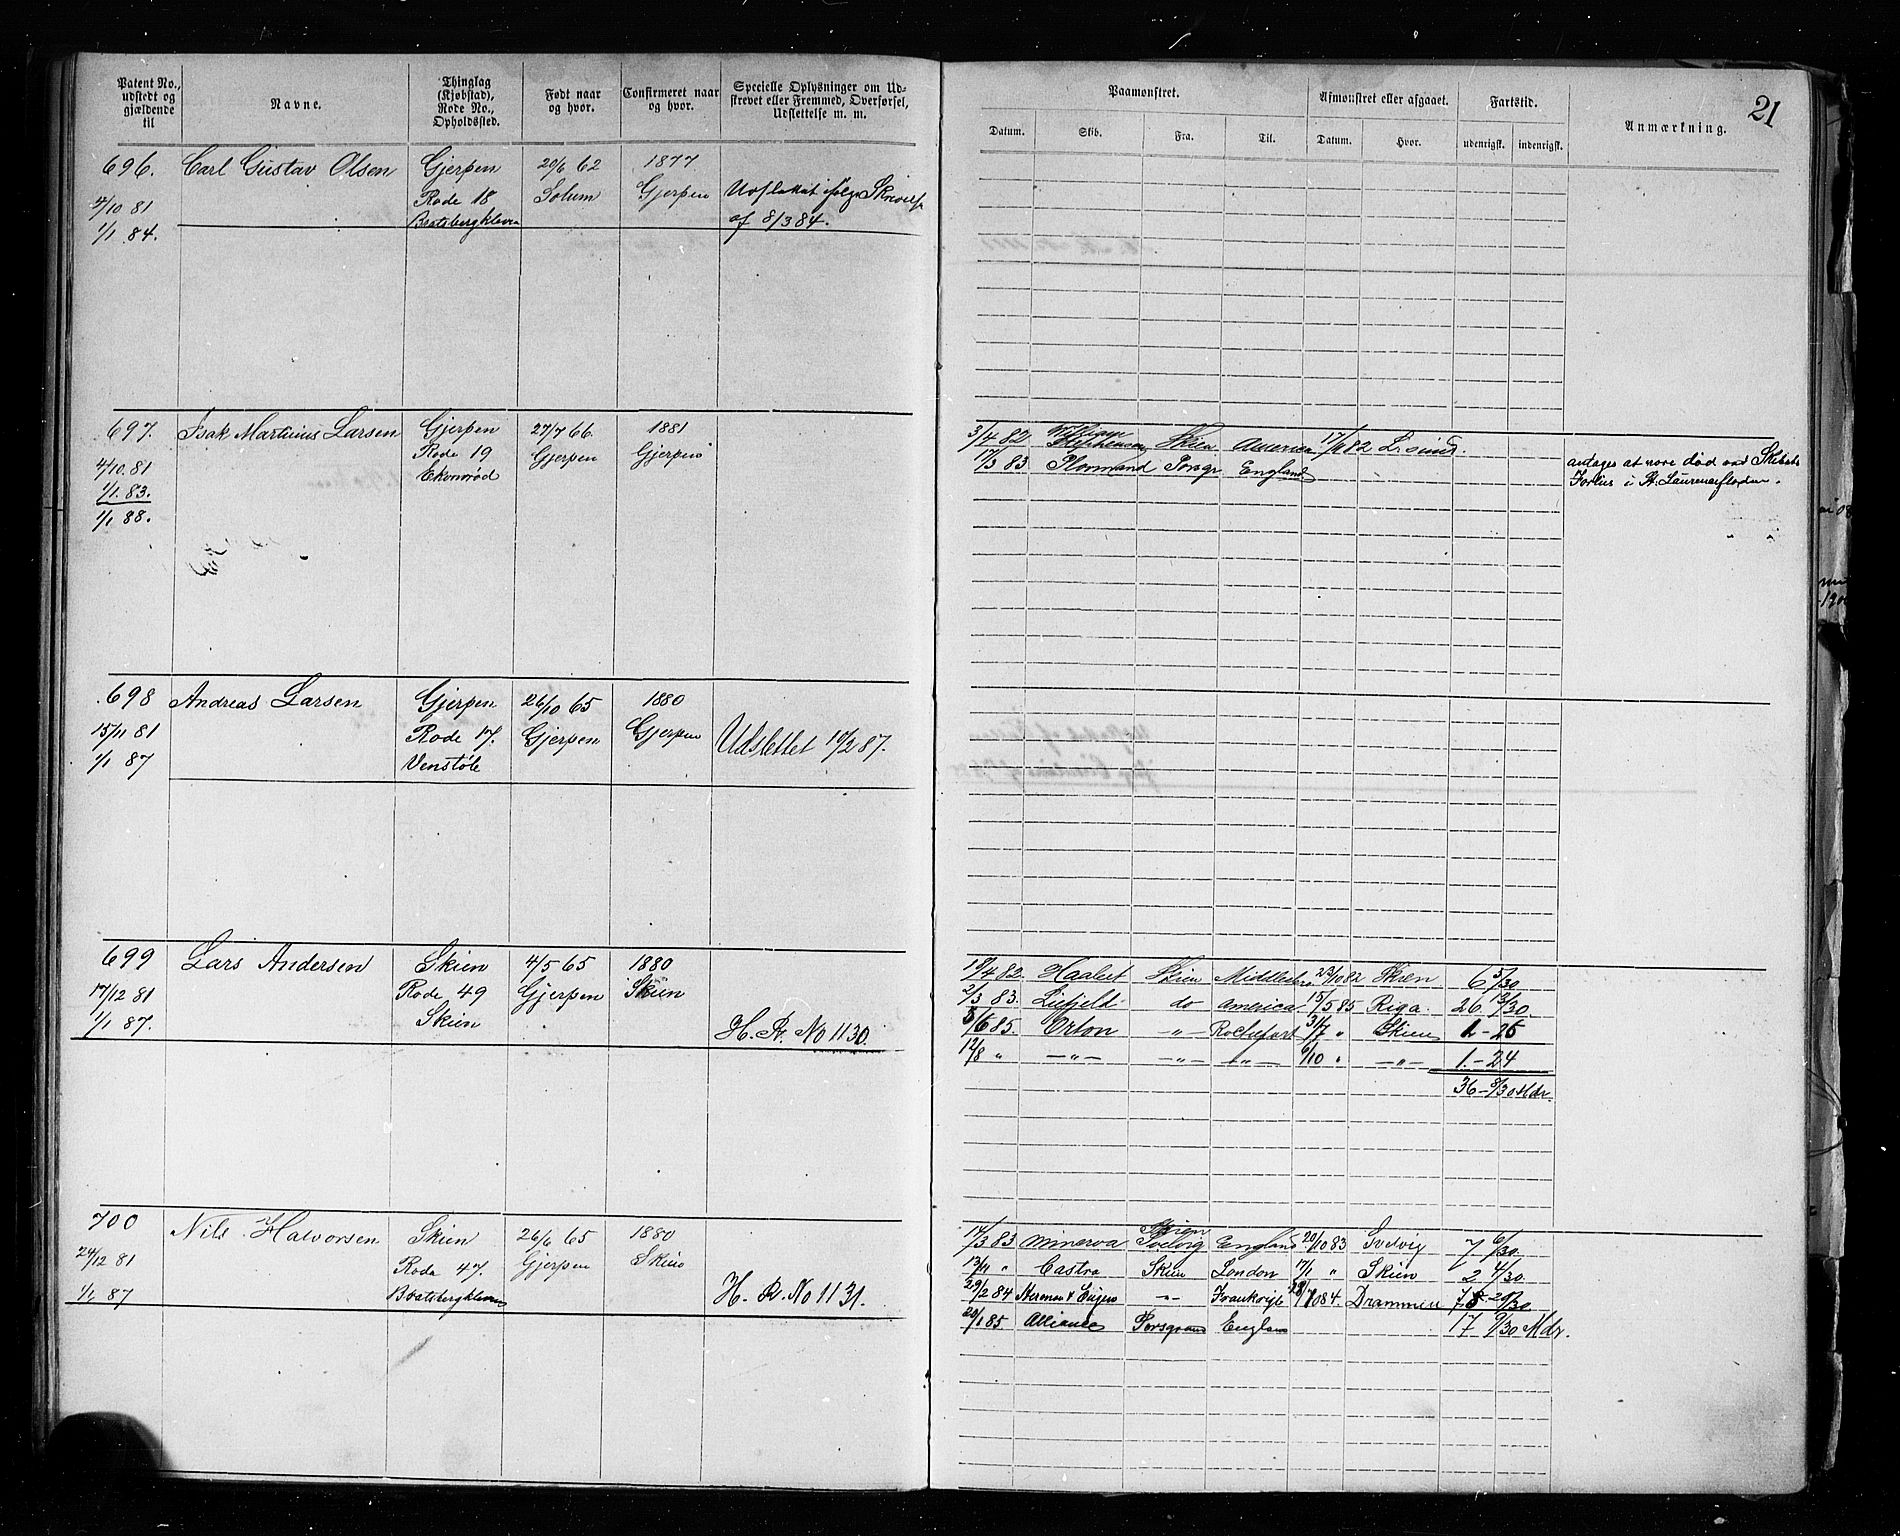 Patent No., udstedt og gjældende til
Navne.
Thinglag (Kjøbstad), Rode No., Opholdssted.
Født naar og hvor.
Confirmeret naar og hvor.
Specielle Oplysninger om Udskrevet eller Fremmed, Overførsel, Udslettelse m. m.
696. Carl Gustav Olsen Gjerpen 20/6 62 1877
4/10 81 Rode 18 Solum Gjerpen
1/1 84. Bratsbergkleven af 8/3 84.
697. Isak Martinius Larsen Gjerpen 27/7 66. 1881
4/10. 81 Rode 19 Gjerpen Gjerpen
1/1. 83.
1/1 88.
698 Andreas Larsen Gjerpen 26/10 65 1880
15/11 81 Rode 17. Gjerpen Gjerpen Udslettet 10/2 87.
1/1 87 Venstøb
699 Lars Andersen Skien 4/5 65 1880
17/12 81 Rode 49 Gjerpen Skien
1/1 87. Skien H. R. No 1130.
700 Nils Halvorsen Skien 26/6 65 1880
24/12 81 Rode 47. Gjerpen Skien
1/1 87 Bratsbergkleven H. R. No 1131.
21
Paamønstret.
Afmønstret eller afgaaet.
Fartstid.
Anmærkning.
Datum. Skib. Fra. Til. Datum. Hvor. udenrigsk. indenrigsk.
3/4 82. Skien America 17/6 82
17/3 83 Plormand Porsgr England antages at være død ved Skibets
Forliis i St. Laurencefloden.
18/4 82. Skien 23/10 82 Skien 6 5/30
2/3 83. do America 15/5 85 Riga. 26 13/30
5/6 85. Orton „ Rochefort 31/7 „ Skien 1 - 25
12/8 „ - „ - - „ - - „ - 6/10 „ - „ - 1. - 24
36 - 8/30 Mdr.
Skien
17/3 83 Minerva Svelvig England 20/10 83 Svelvig 7 6/30
13/11 „ Castro Skien London 17/1 „ Skien 2 4/30
29/2 84 - „ - Drammen
20/1 85. Alliance Porsgrund England 17 9/30 Mdr.